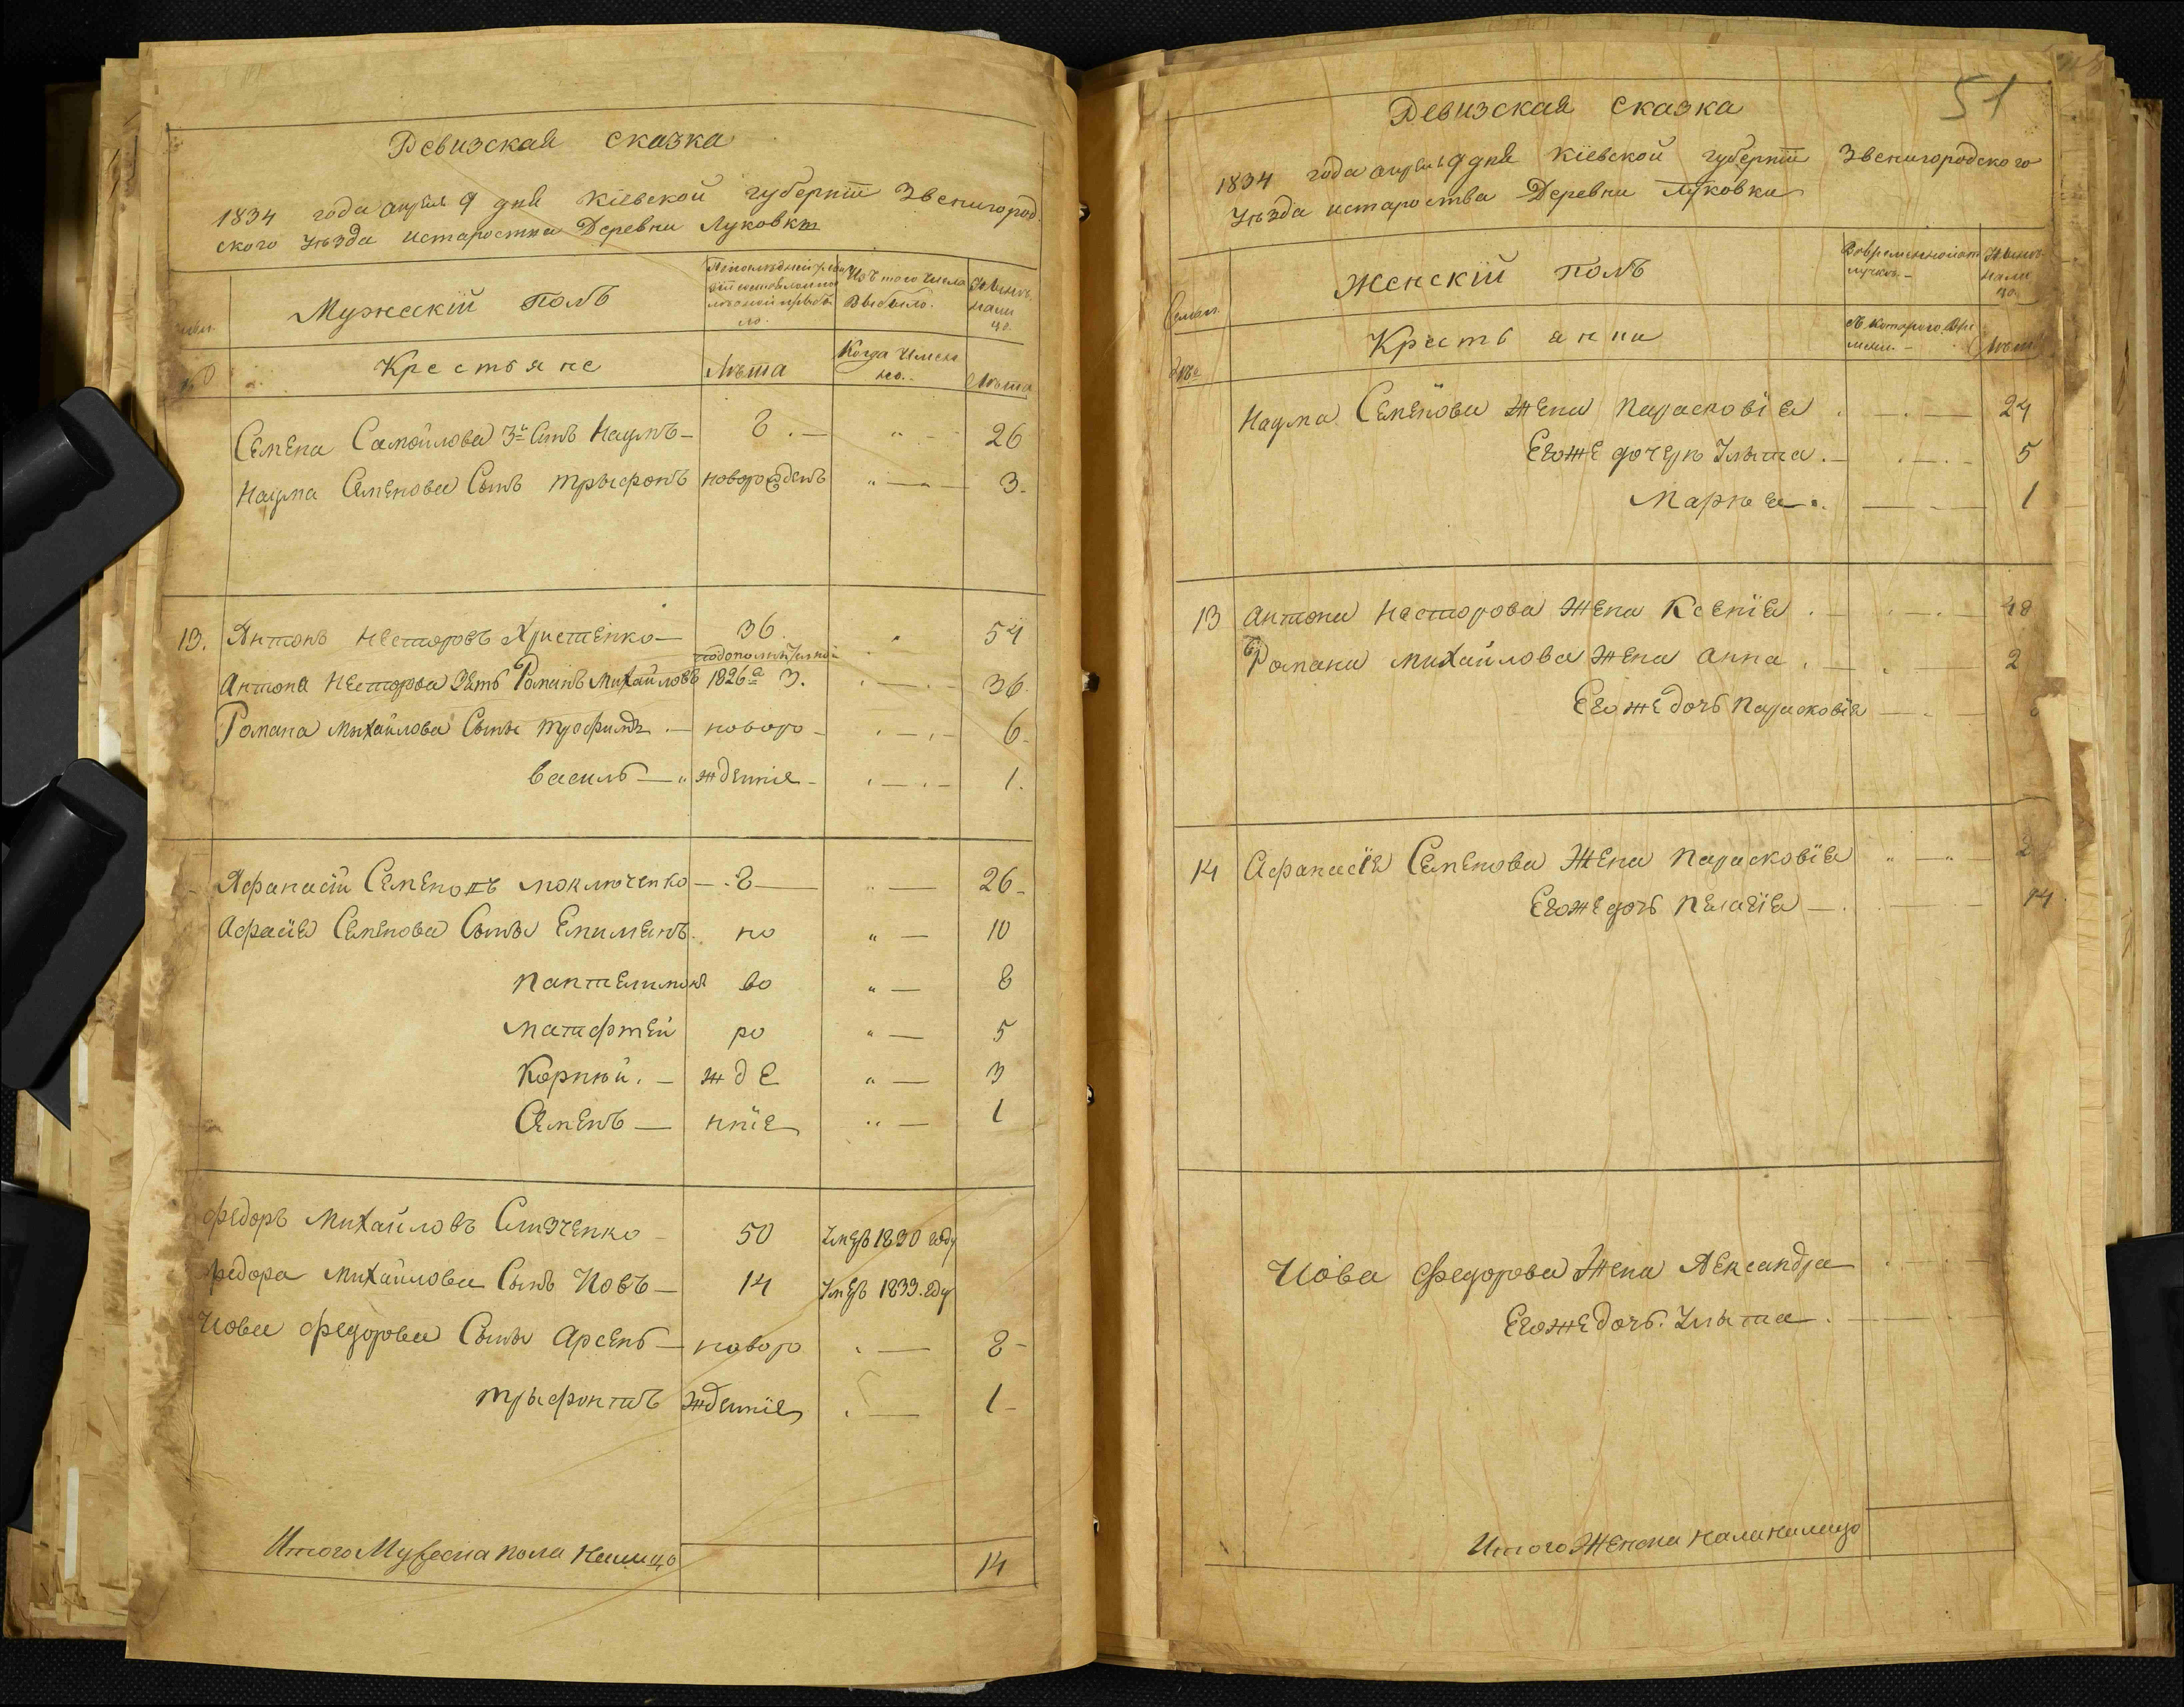 Ревизская сказка
1834 года апреля 9 дня Кіевской губерніи Звенигород
ского уѣзда истароства Деревни Луковки
Мужескій полъ
Изъ того числа
Выбыло.
Нынѣ
нали
цо
Крестьяне
Лѣта
Когда имен
но.
Лѣта
Семена Самойлова 3й Сынъ Наумъ 8 26
Наума Семенова Сынъ Трыфонъ новорожденъ 3.
13. Антонъ Несторовъ Христенко 36 54
Антона Несторова Зять Романъ Михайловъ 1826а 3. 36.
Романа Михайлова Сыны Трофимъ новоро 6
василь жденніе 1.
Афанасій Семеновъ Моключенко 8 26
Афасія Семенова Сыны Емилианъ но 10
Пантелимонъ во 8
Матафтей ро 5
Корнѣй жде 3
Семенъ нніе 1
Федоръ Михайловъ Слизченко 50 Умеръ 1830 году
Федора Михайлова Сынъ Іовъ 14 Умеръ 1833 году
Іова Федорова Сыны Арсенъ новоро 8
Трыфонтій жденніе 1
Итого Мужеска пола Налицо 14
51
Ревизская сказка
1834 года апреля 9 дня Кіевской губерніи Звенигородского
Уѣзда истароства Деревни Луковки
Семьи
Женскій полъ
Нынѣ
нали
цо.
Крестьянки
съ которого Вре
мени.
Лѣта
Наума Семенова Жена Парасковія 24
Егоже дочери Улыта 5
Марья 1
13 Антона Несторова Жена Ксенія 48
Романа Михайлова Жена Анна 2
Егоже дочь Парасковія
14 Афанасія Семенова Жена Парасковія 2
Егоже дочь Пелагія 14
Іова Федорова Жена Александра
Егоже дочь Улыта